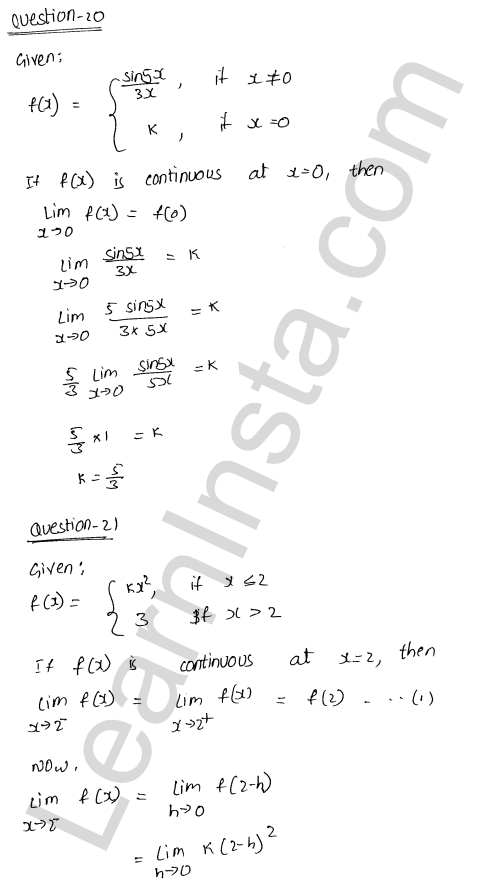 Question-20
Given:
f(x) = { sin5x/3x , if x≠0
K , if x=0
If f(x) is continuous at x=0, then
Lim x→0 f(x) = f(0)
Lim x→0 sin5x/3x = K
Lim x→0 5 sin5x/3×5x = K
5/3 Lim x→0 sin5x/5x = K
5/3 ×1 = K
K = 5/3
Question-21
Given:
f(x) = { Kx², if x ≤ 2
3 if x > 2
If f(x) is continuous at x=2, then
Lim x→2⁻ f(x) = Lim x→2⁺ f(x) = f(2) - ..(1)
Now,
Lim x→2⁻ f(x) = Lim h→0 f(2-h)
= Lim h→0 K(2-h)²
LearnInsta.com